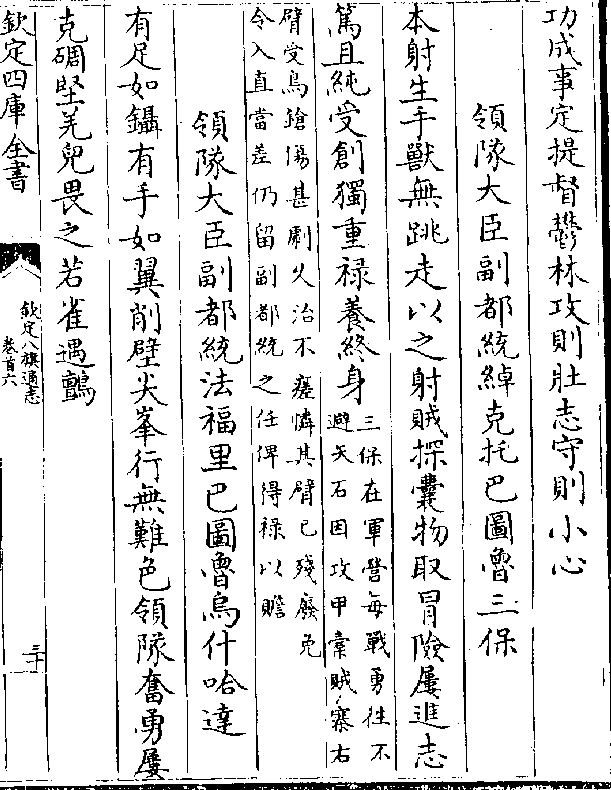 功成事定提督鬱林攻則壯志守則小心
領隊大臣副都統綽克托巴圖魯三保
本射生手獸無跳走以之射賊探囊物取冒險屢進志
篤且純受創獨重祿養終身
三保在軍營每戰勇往不
避矢石因攻甲索賊寨右
臂受鳥鎗傷甚劇久治不瘥憐其臂已殘廢免
令入直當差仍留副都統之任俾得祿以贍
領隊大臣副都統法福里巴圖魯烏什哈達
有足如鑷有手如翼削壁尖峯行無難色領隊奮勇屢
克碉堅羌兒畏之若雀遇鸇
欽定四庫全書
欽定八旗通志
卷首六
三十